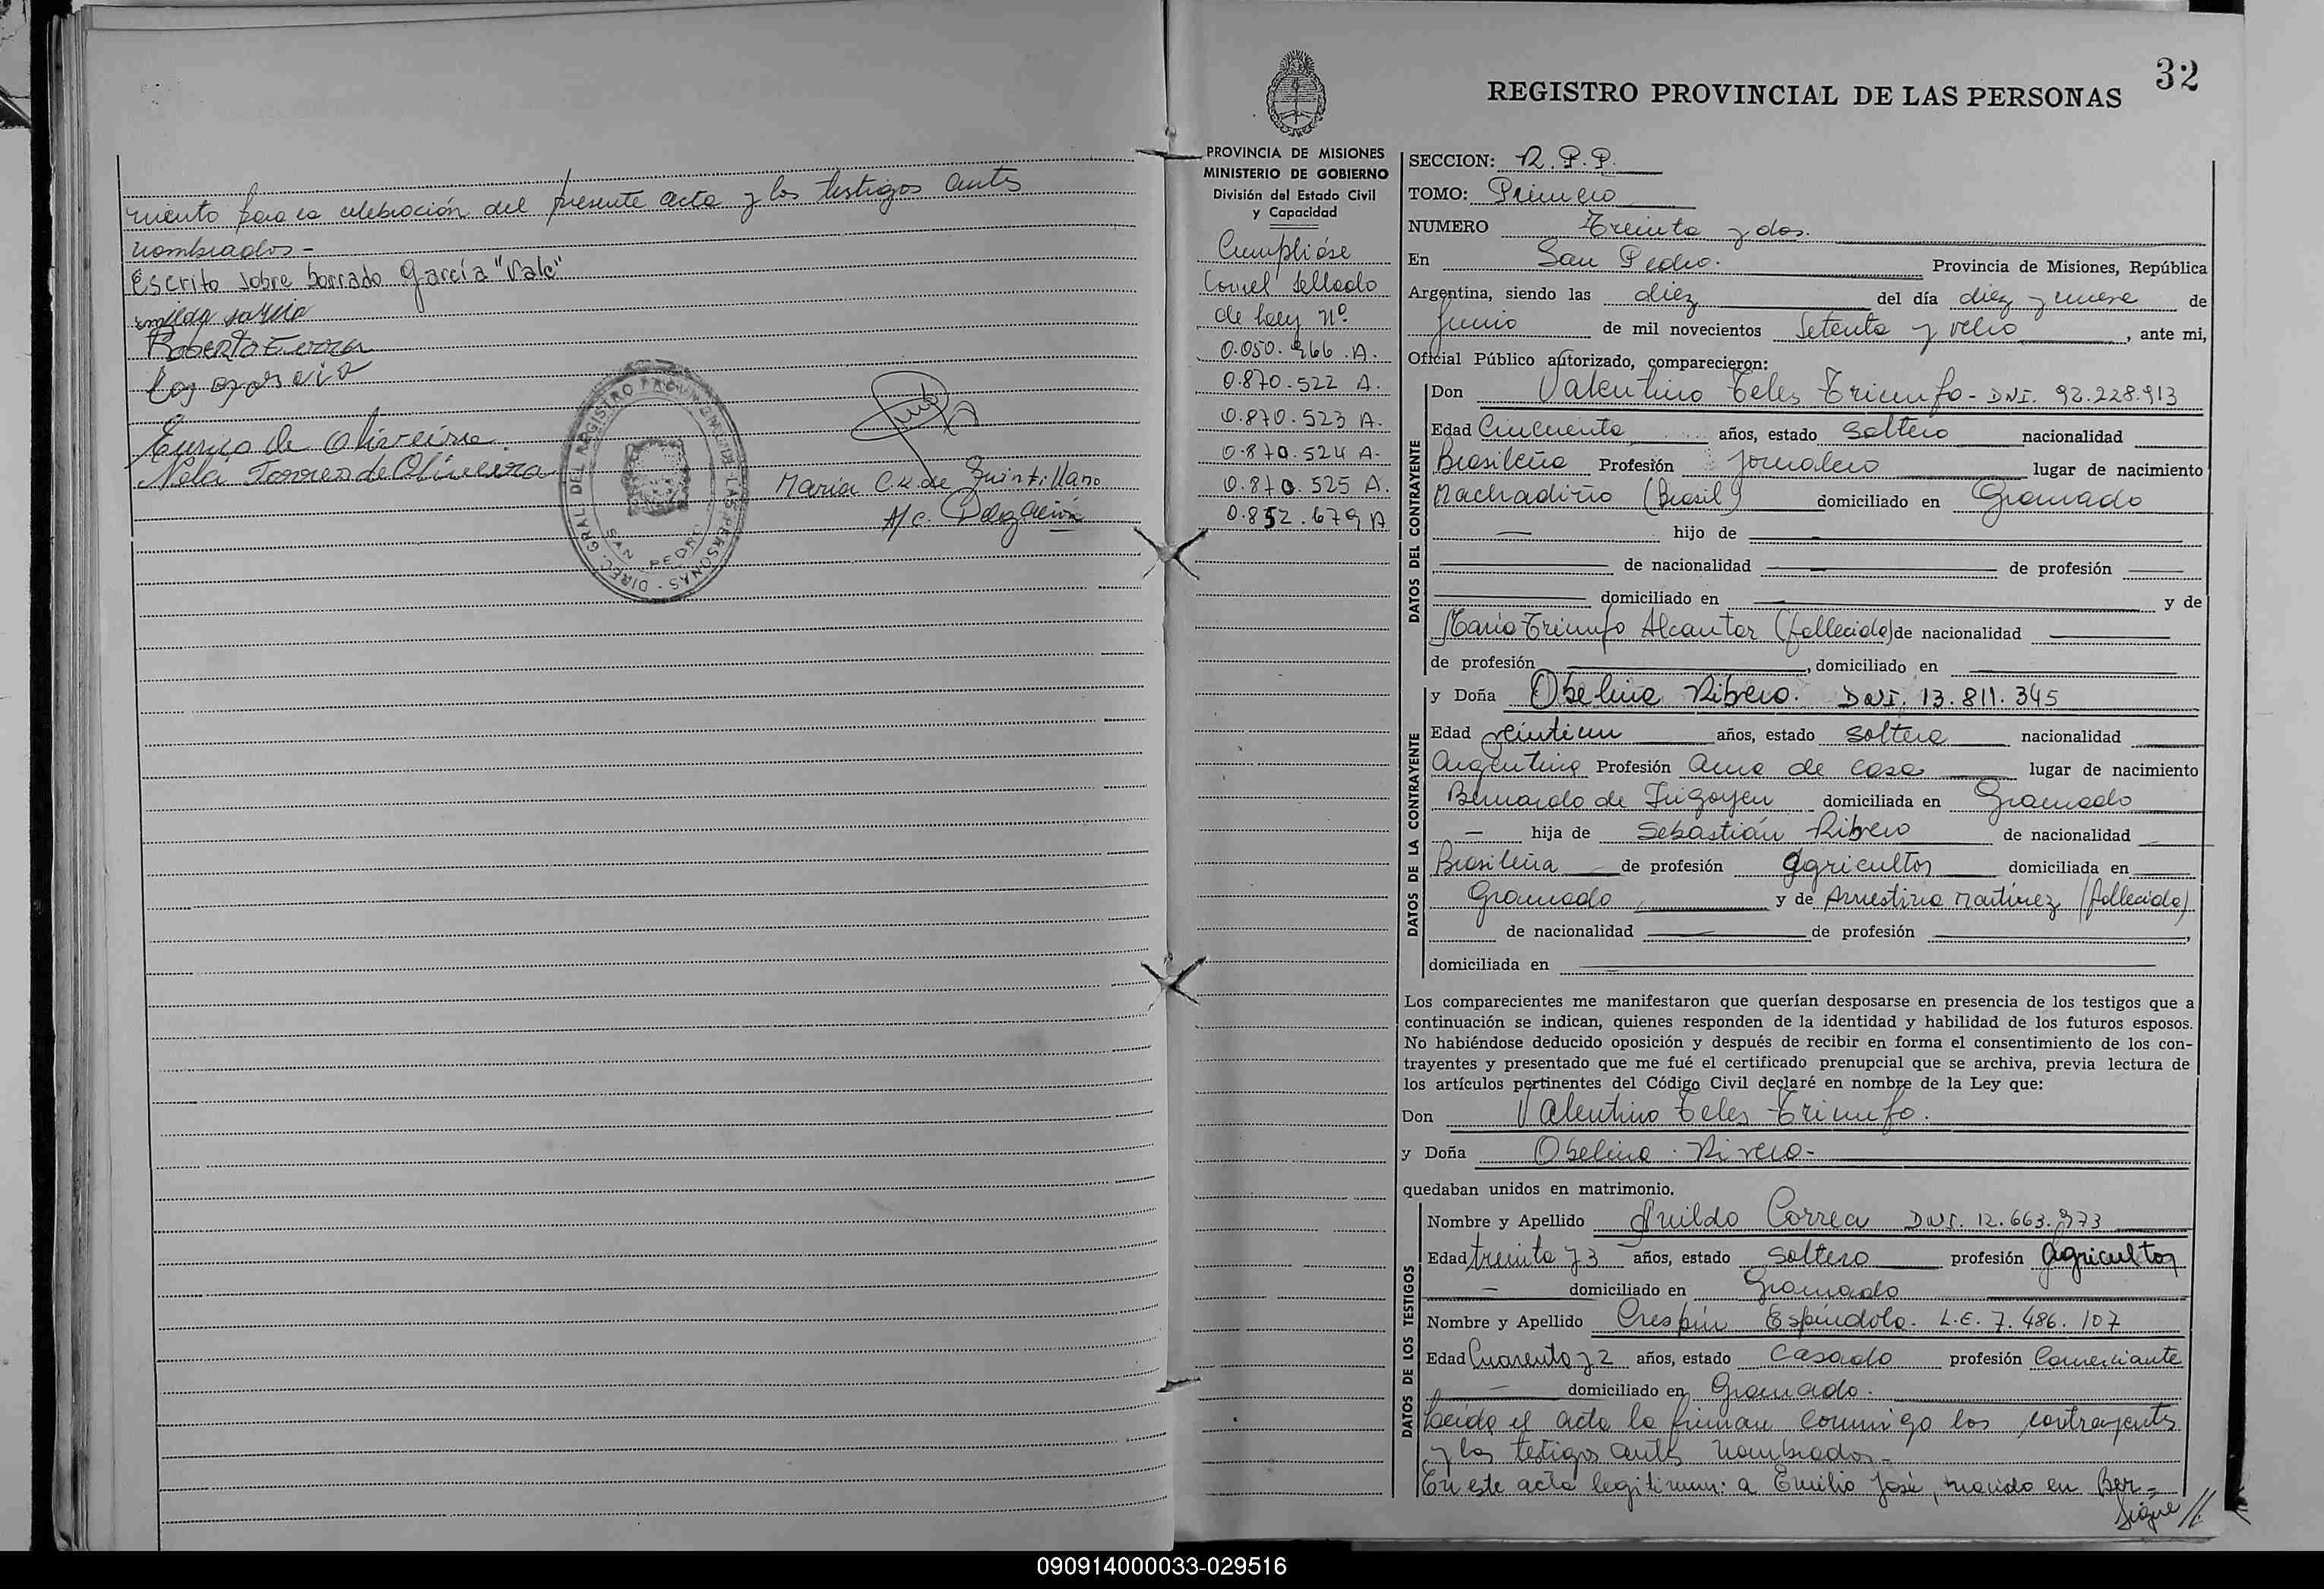 miento para la celebración del presente acta y los testigos antes
nombrados-
Escrito sobre borrado García "Vale"
Eurico de Oliveira
Nela Torres de Oliveira
María C. K. de Quintillano
A/c. Delegación
DIREC. GRAL DEL REGISTRO PROVINCIAL DE LAS PERSONAS
SAN PEDRO
32
REGISTRO PROVINCIAL DE LAS PERSONAS
PROVINCIA DE MISIONES
MINISTERIO DE GOBIERNO
División del Estado Civil
y Capacidad
Cumplióse
Con el sellado
de Ley Nº
0.050.966.A.
0.870.522 A.
0.870.523 A.
0.870.524 A-
0.870.525 A.
0.852.679 A
SECCION: R.P.P.
TOMO: Primero
NUMERO Treinta y dos.
En San Pedro. Provincia de Misiones, República
Argentina, siendo las diez del día diez y nueve de
Junio de mil novecientos Setenta y ocho, ante mi,
Oficial Público autorizado, comparecieron:
DATOS DEL CONTRAYENTE
Don Valentino Teles Triunfo- DNI. 92.228.913
Edad Cincuenta años, estado Soltero nacionalidad
Brasileña Profesión Jornalero lugar de nacimiento
Machadiño (Brasil) domiciliado en Gramado
hijo de
de nacionalidad de profesión
domiciliado en y de
María Triunfo Alcantar (fallecida) de nacionalidad
de profesión , domiciliado en
DATOS DE LA CONTRAYENTE
y Doña Obelina Ribero. DNI. 13.811.345
Edad veintiun años, estado Soltera nacionalidad
Argentina Profesión Ama de Casa lugar de nacimiento
Bernardo de Irigoyen domiciliada en Gramado
hija de Sebastián Ribero de nacionalidad
Brasileña de profesión Agricultor domiciliada en
Gramado y de Arnestina Martinez (fallecida)
de nacionalidad de profesión ,
domiciliada en
Los comparecientes me manifestaron que querían desposarse en presencia de los testigos que a
continuación se indican, quienes responden de la identidad y habilidad de los futuros esposos.
No habiéndose deducido oposición y después de recibir en forma el consentimiento de los con-
trayentes y presentado que me fué el certificado prenupcial que se archiva, previa lectura de
los artículos pertinentes del Código Civil declaré en nombre de la Ley que:
Don Valentino Teles Triunfo.
y Doña Obelina Rivero-
quedaban unidos en matrimonio.
DATOS DE LOS TESTIGOS
Nombre y Apellido Anildo Correa DNI. 12.663.973
Edad treinta y 3 años, estado Soltero profesión Agricultor
domiciliado en Gramado
Nombre y Apellido Crespín Espíndola. L.E. 7.486.107
Edad Cuarenta y 2 años, estado Casado profesión Comerciante
domiciliado en Gramado.
Leída el acta la firman conmigo los contrayentes
y los testigos antes nombrados-
En este acto legitiman: a Emilio José, nacido en Ber=
Sigue//.
090914000033-029516